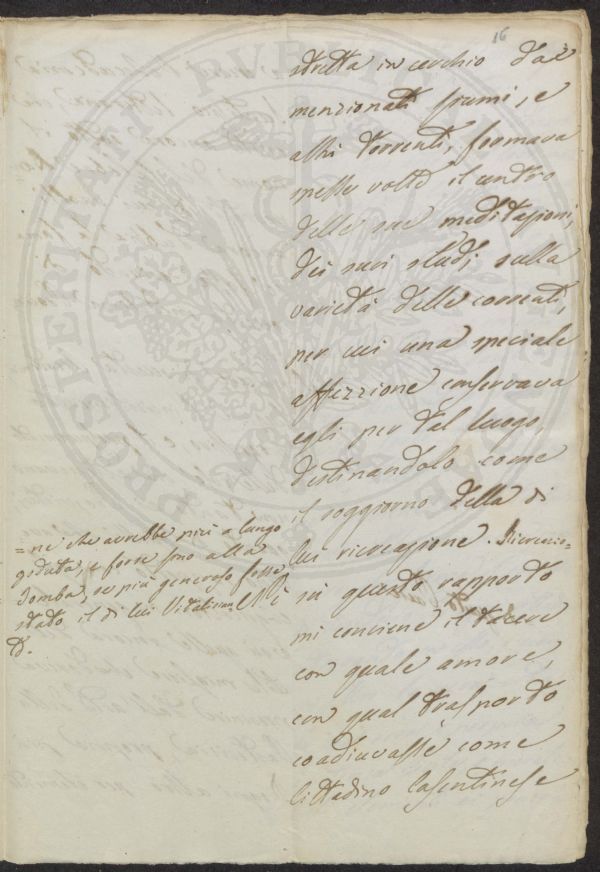 16
stretta in cerchio dai
menzionati fiumi, e
altri torrenti, formava
spesse volte il centro
delle sue meditazioni,
dei suoi studj sulla
varietà delle correnti,
per cui una speciale
affezzione conservava
egli per tal luogo,
destinandolo come
il soggiorno della di
lui ricreazione. Ricreazio-
=ne che avrebbe più a lungo
goduta, e forse fino alla
Tomba, se più generoso fosse
stato il di lui
Nè
in questo rapporto
mi conviene il tacere
con quale amore,
con qual trasporto
coadiuvasse come
Cittadino Casentinese
PROSPERITATI PVBLICAE AVGENDAE